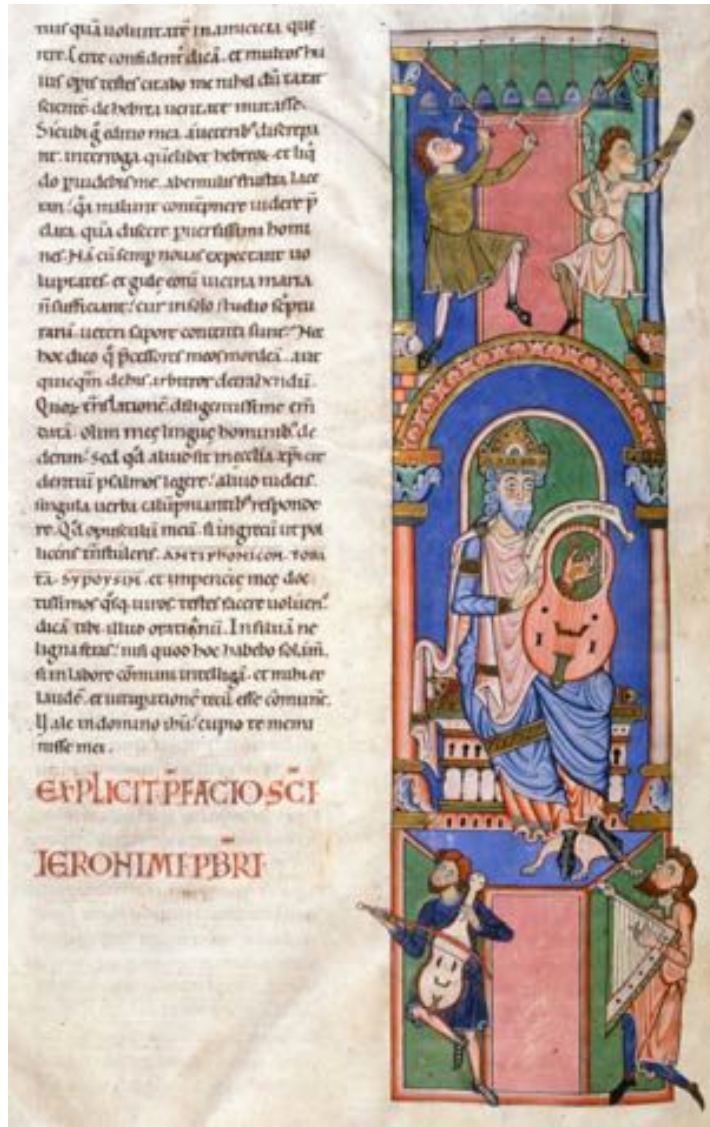 tuis quā uoluntatē in amicicia quę
rere. Certe confident̄ dicā. et multos hu
ius opis testes citabo me nihil dū taxat
scientē de hebrea ueritate mutasse.
Sicubi g̊ editio mea. a ueterib; discrepa
nt. interroga quēlibet hebreoꝝ. et liq̇
do puidebis me. ab emulis frustra lace
rari. q̇a malunt contēpnere uidere p̄
clara. quā discere puersissimi homi
nes. Nā cū semp nouas expectant uo
luptates. et gulę eoꝝ uicina maria
n̄ sufficiant. cur in solo studio sc̄ptu
rarū ueteri sapore contenti sunt? Nec
hoc dico q̊d p̄cessores meos mordeā. aut
quicq̄m de his arbitror detrahendū.
Quoꝝ trāslationē diligentissime em̄
datā. olim meę linguę hominib; de
derim. Sed q̊d aliud sit in ecclīa xp̄i cre
dentiū psalmos legere. aliud iudeis
singula uerba calūpniantib; responde
re. Q̊d opusculū meū. si in grecū ut pol
liceris trāstuleris. ANTIPHONICON TOBI
TA. SYPOYSIN. et imperitię męę doc
tissimos q̊sq; uiros testes facere uoluer̄
dicā tibi illud oratianū. In siluā ne
ligna feras. nisi quod hoc habebo solam̄.
si in labore cōmuni intelligā. et mihi et
laudē. et uituperationē tecū esse cōmunē.
Uale in domino ihū. cupio te memi
nisse mei.
EXPLICIT P̄FACIO SC̄I
IERONIMI PB̄RI